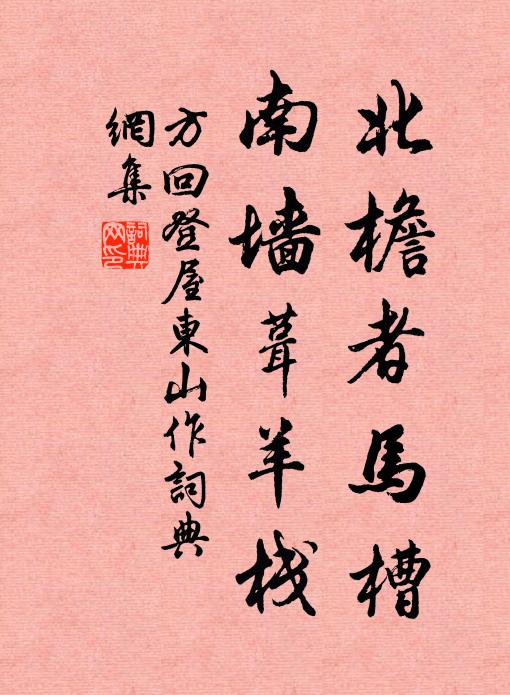 北檐者馬槽
南墙葺羊栈
方回登屋東山作詞典
網集
詞典網印